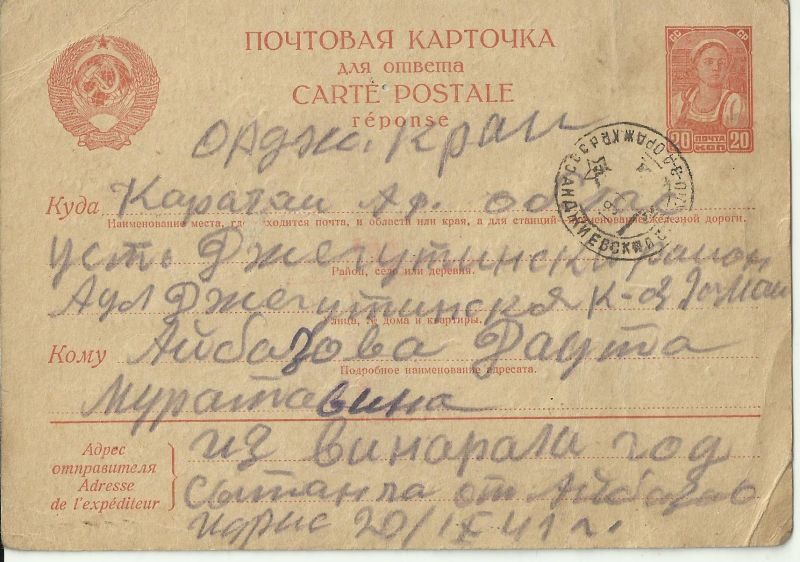 ПОЧТОВАЯ КАРТОЧКА
для ответа
CARTE POSTALE
réponse
СС СР
20 ПОЧТА КОП 20
Орджо. Краи
Куда Карачаи Ав. обла
Наименование места, где находится почта, и области или края, а для станций—наименование железной дороги.
усть Джегутински раион
Район, село или деревня.
Аул Джегутинская К-з
улица, № дома и квартиры.
Кому Айбазова Даута
Подробное наименование адресата.
Муратавина
Адрес отправителя
Adresse de l'expéditeur
из
от Айбазов
Идрис 20/IX 41 г.